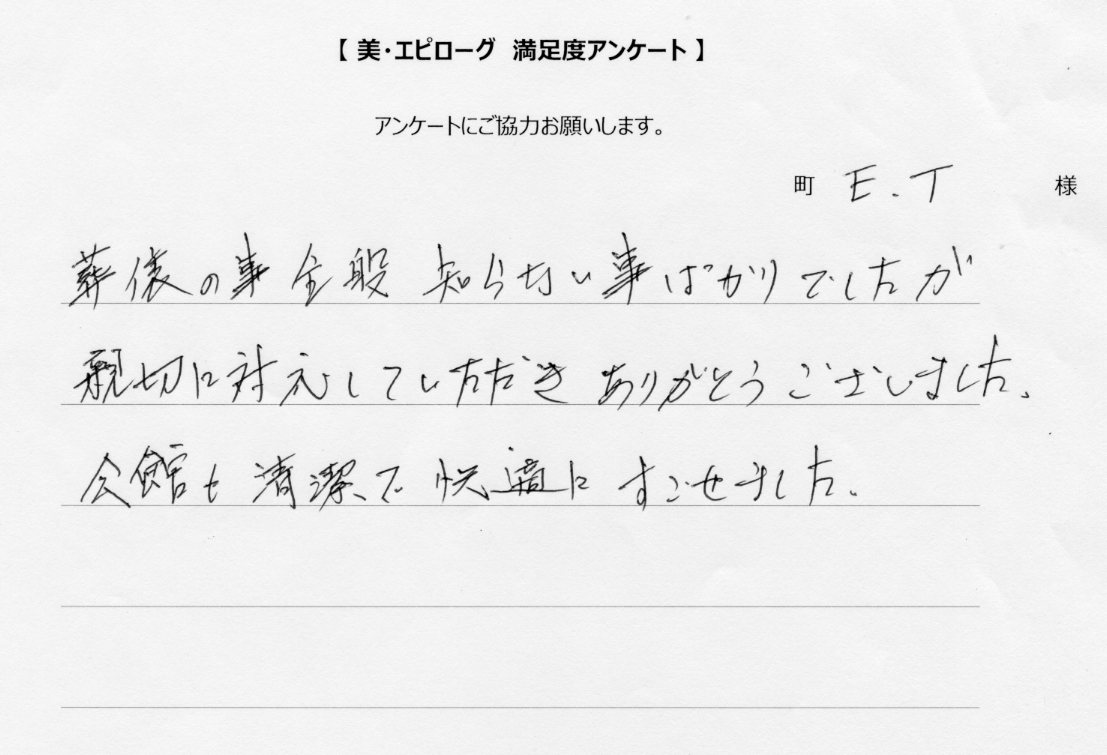 【 美・エピローグ 満足度アンケート 】
アンケートにご協力お願いします。
町 E.T 様
葬儀の事全般 知らない事ばかりでしたが
親切に対応していただき ありがとうございました。
会館も 清潔で 快適に すごせました。